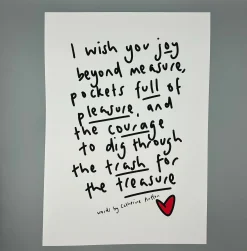 I wish you joy
beyond measure,
pockets full of
pleasure, and
the courage
to dig through
the trash for
the treasure
words by Catherine